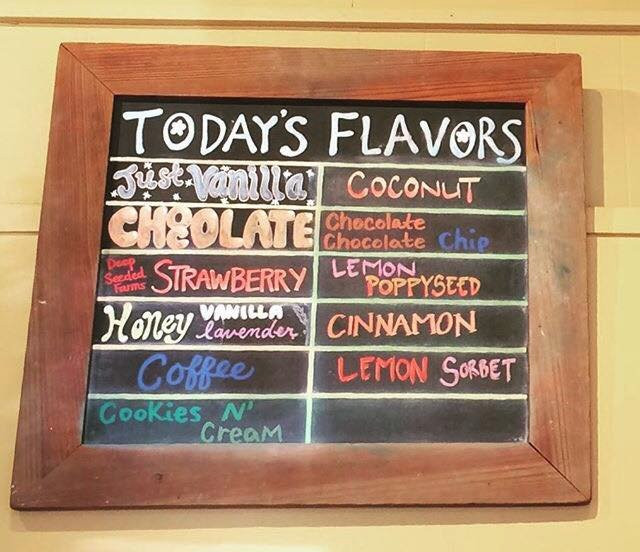 TODAY'S FLAVORS
Just Vanilla
CHOCOLATE
Deep
Seeded
Farms STRAWBERRY
Honey VANILLA
lavender
Coffee
Cookies N'
Cream
COCONUT
Chocolate
Chocolate Chip
LEMON
POPPYSEED
CINNAMON
LEMON SORBET